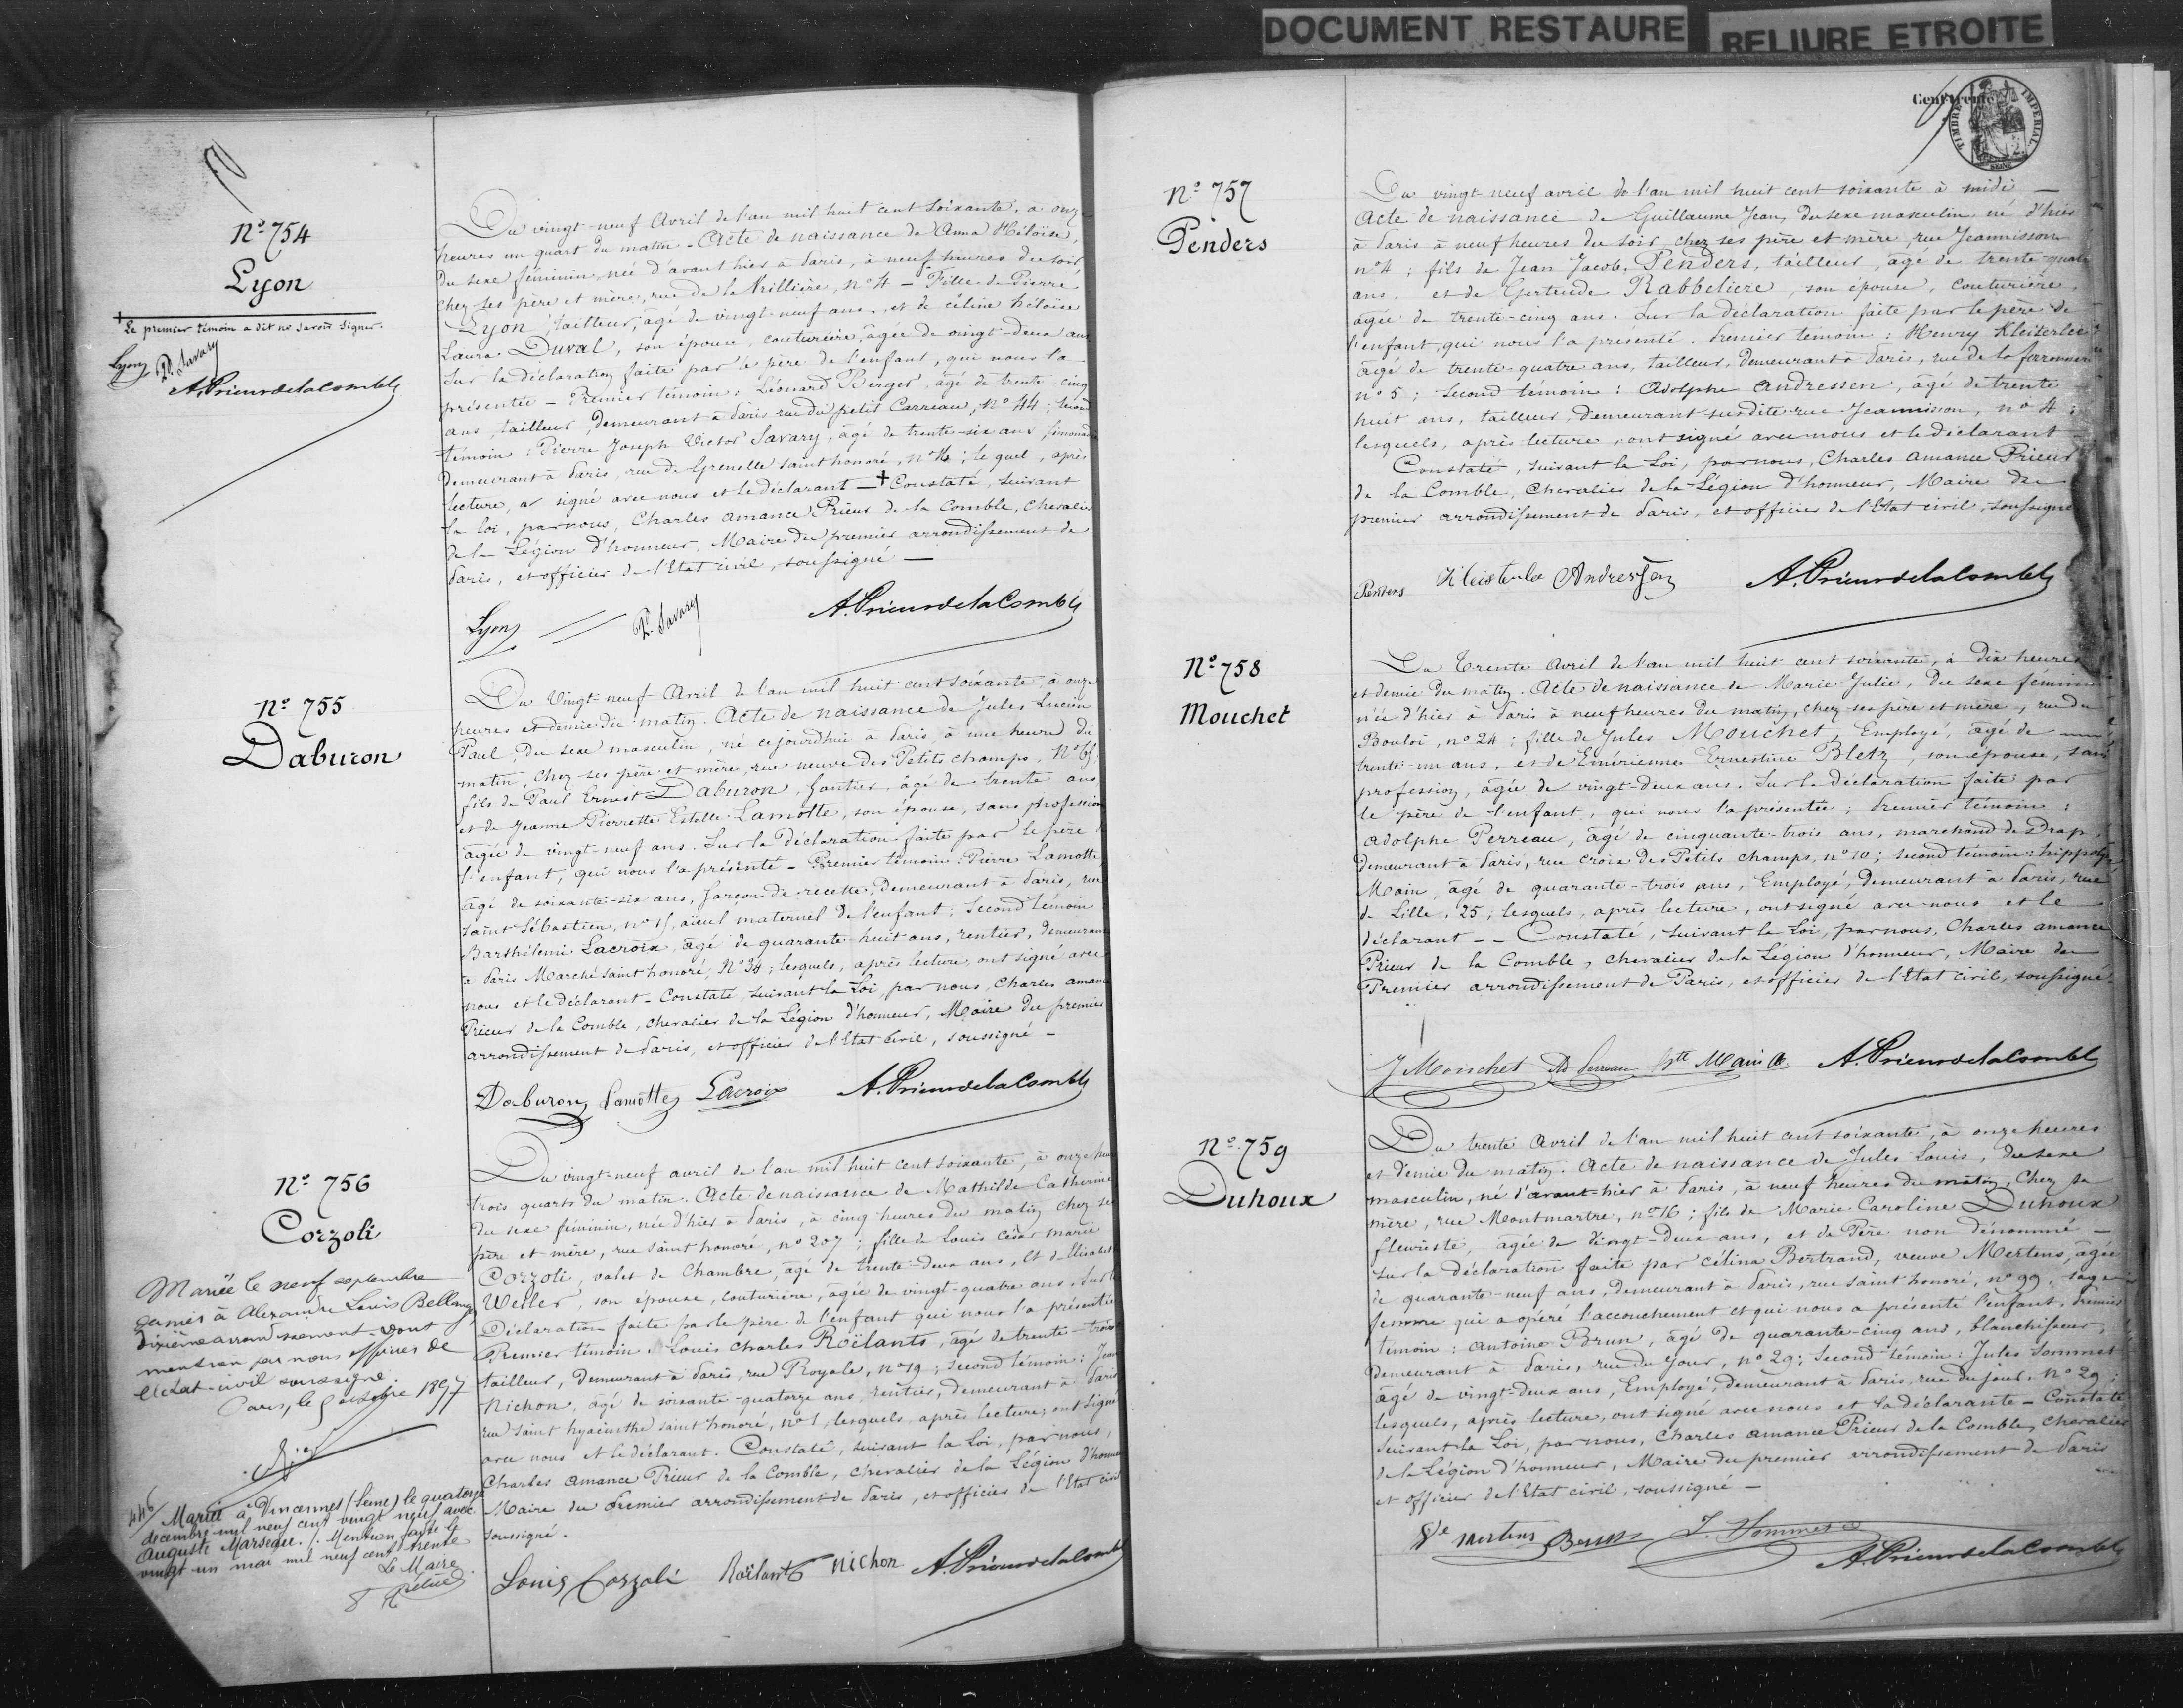 DOCUMENT RESTAURE
RELIURE ETROITE
N° 754
Lyon
+
Le premier témoin a dit ne savoir signer.
Lyon P. Savary
A. Prieur de la Comble
Du vingt-neuf Avril de l'an mil huit cent soixante, à onze
heures un quart du matin - Acte de naissance de Anna Héloïse,
du sexe féminin, née d'avant hier à Paris, à neuf heures du soir
chez ses père et mère, rue de la Vrillière, n° 4 - Fille de Pierre
Lyon, tailleur, âgé de vingt-neuf ans, et de céline héloïse
Laura Duval, son épouse, couturière, âgée de vingt-deux ans
Sur la déclaration faite par le père de l'enfant, qui nous l'a
présentée - Premier témoin: Léonard Berger, âgé de trente-cinq
ans, tailleur, demeurant à Paris rue du petit Carreau, n° 44; second
témoin: Pierre Joseph Victor Savary, âgé de trente-six ans,
demeurant à Paris, rue de Grenelle saint honoré, n° 16; le quel, après
lecture, a signé avec nous et le déclarant - + Constaté, suivant
la loi, par nous, Charles Amance Prieur de la Comble, Chevalier
de la Légion d'honneur, Maire du premier arrondissement de
Paris, et officier de l'Etat civil, soussigné -
Lyon P. Savary A. Prieur de la Comble
N° 755
Daburon
Du Vingt-neuf Avril de l'an mil huit cent soixante à onze
heures et demie du matin. Acte de naissance de Jules Lucien
Paul, du sexe masculin, né cejourdhui à Paris, à une heure du
matin, chez ses père et mère, rue neuve des Petits champs,
fils de Paul Ernest Daburon, gantier, âgé de trente ans
et de Jeanne Pierrette Estelle Lamotte, son épouse, sans profession
âgée de vingt-neuf ans. Sur la déclaration faite par le père
l'enfant, qui nous l'a présenté - Premier témoin: Pierre Lamotte
âgé de soixante-six ans, garçon de recette, demeurant à Paris, rue
saint Sébastien, aïeul maternel de l'enfant; Second témoin
Barthélemi Lacroix, âgé de quarante-huit ans, rentier, demeurant
à Paris Marché saint honoré, N° 34; lesquels, après lecture, ont signé avec
nous et le déclarant - Constaté, suivant la Loi, par nous, Charles amance
Prieur de la Comble, chevalier de la Légion d'honneur, Maire du premier
arrondissement de Paris, et officier de l'Etat Civil, soussigné -
Daburon Lamotte Lacroix A. Prieur de la Comble
N° 756
Corzoli
Mariée le neuf septembre
dernier à Alexandre Louis Bellanger
dixième arrondissement - Dont
mention par nous officier de
l'état-civil soussigné.
Paris, le 5 octobre 1897
446/ Mariée à Vincennes (Seine) le quatorze
décembre mil neuf cent vingt neuf avec
Auguste Marseau. /. Mention faite le
vingt un mai mil neuf cent trente
Le Maire
Du vingt-neuf avril de l'an mil huit cent soixante, à onze heures
trois quarts du matin. Acte de naissance de Mathilde Catherine
du sexe féminin, née d'hier à Paris, à cinq heures du matin chez ses
père et mère, rue saint honoré, n° 207; fille de Louis César marie
Corzoli, valet de Chambre, âgé de trente-deux ans, et de Elisabeth
Weiler, son épouse, couturière, âgée de vingt-quatre ans. Sur la
Déclaration faite par le père de l'enfant qui nous l'a présentée
Premier témoin: Louis Charles Roëlants, âgé de trente-trois
tailleur, demeurant à Paris, rue Royale, n° 19; second témoin: Jean
Nichon, âgé de soixante-quatorze ans, rentier, demeurant à Paris
rue saint hyacinthe saint honoré, n° 1, lesquels, après lecture, ont signé
avec nous et le déclarant. Constaté, suivant la Loi, par nous,
Charles Amance Prieur de la Comble, chevalier de la Légion d'honneur
Maire du Premier arrondissement de Paris, et officier de l'Etat civil
soussigné.
Louis Corzoli Roëlants Nichon A. Prieur de la Comble
Cent trente
TIMBRE IMPERIAL
N° 757
Penders
Du vingt neuf avril de l'an mil huit cent soixante à midi -
Acte de naissance de Guillaume Jean, du sexe masculin né d'hier
à Paris à neuf heures du soir chez ses père et mère, rue Jeannisson
n° 4; fils de Jean Jacob Penders, tailleur, âgé de trente-quatre
ans, et de Gertrude Rabbelière, son épouse, couturière,
âgée de trente-cinq ans. Sur la déclaration faite par le père de
l'enfant, qui nous l'a présenté. Premier témoin: Henry Kleisterlee
âgé de trente-quatre ans, tailleur, demeurant à Paris, rue de la ferronnerie
n° 5; Second témoin: Adolphe Andressen, âgé de trente
huit ans, tailleur, demeurant susdite rue Jeannisson, n° 4;
lesquels, après lecture, ont signé avec nous et le déclarant -
Constaté, suivant la Loi, par nous, Charles amance Prieur
de la Comble, Chevalier de la Légion d'honneur, Maire du
premier arrondissement de Paris, et officier de l'Etat civil, soussigné
Penders Kleisterlee Andressen A. Prieur de la Comble
N° 758
Mouchet
Du Trente Avril de l'an mil huit cent soixante, à Dix heures
et demie du matin. Acte de naissance de Marie Julie, du sexe féminin
née d'hier à Paris à neuf heures du matin, chez ses père et mère, rue du
Bouloi, n° 24; fille de Jules Mouchet, Employé, âgé de
trente-un ans, et de Emérienne Ernestine Bletz, son épouse, sans
profession, âgée de vingt-deux ans. Sur la déclaration faite par
le père de l'enfant, qui nous l'a présentée; Premier témoin:
Adolphe Perreau, âgé de cinquante-trois ans, marchand de Drap,
demeurant à Paris, rue croix des Petits champs, n° 10; Second témoin: hippolyte
Main, âgé de quarante-trois ans, Employé, demeurant à Paris, rue
de Lille, 25; lesquels, après lecture, ont signé avec nous et le
déclarant - - Constaté, suivant la Loi, par nous, Charles amance
Prieur de la Comble, chevalier de la Légion d'honneur, Maire du
Premier arrondissement de Paris, et officier de l'Etat civil, soussigné -
J Mouchet Ad Perreau Hte Main A. Prieur de la Comble
N° 759
Duhoux
Du trente Avril de l'an mil huit cent soixante, à onze heures
et demie du matin. Acte de naissance de Jules Louis, du sexe
masculin, né d'avant-hier à Paris, à neuf heures du matin, Chez sa
mère, rue Montmartre, n° 16; fils de Marie Caroline Duhoux
fleuriste, âgée de vingt-deux ans, et de Père non dénommé -
Sur la déclaration faite par célina Bertrand, veuve Mertens, âgée
de quarante-neuf ans, demeurant à Paris, rue saint honoré, n° 99, sage
femme qui a opéré l'accouchement et qui nous a présenté l'enfant. Premier
témoin: Antoine Brun, âgé de quarante-cinq ans, blanchisseur,
demeurant à Paris, rue du Jour, n° 29; Second témoin: Jules Sommet
âgé de vingt-deux ans, Employé, demeurant à Paris, rue du jour, n° 29;
lesquels, après lecture, ont signé avec nous et la déclarante - Constaté
suivant la Loi, par nous, Charles amance Prieur de la Comble, Chevalier
de la Légion d'honneur, Maire du premier arrondissement de Paris
et officier de l'Etat civil, soussigné -
Ve Mertens Brun A. Prieur de la Comble